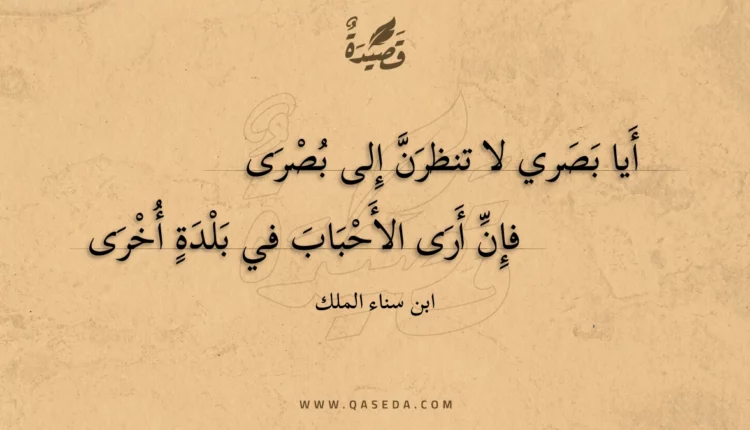 قَصِيدَةٌ
أَيا بَصَري لا تنظرَنَّ إِلى بُصْرَى
فإِنِّ أَرَى الأَحْبَابَ في بَلْدَةٍ أُخْرَى
ابن سناء الملك
WWW.QASEDA.COM